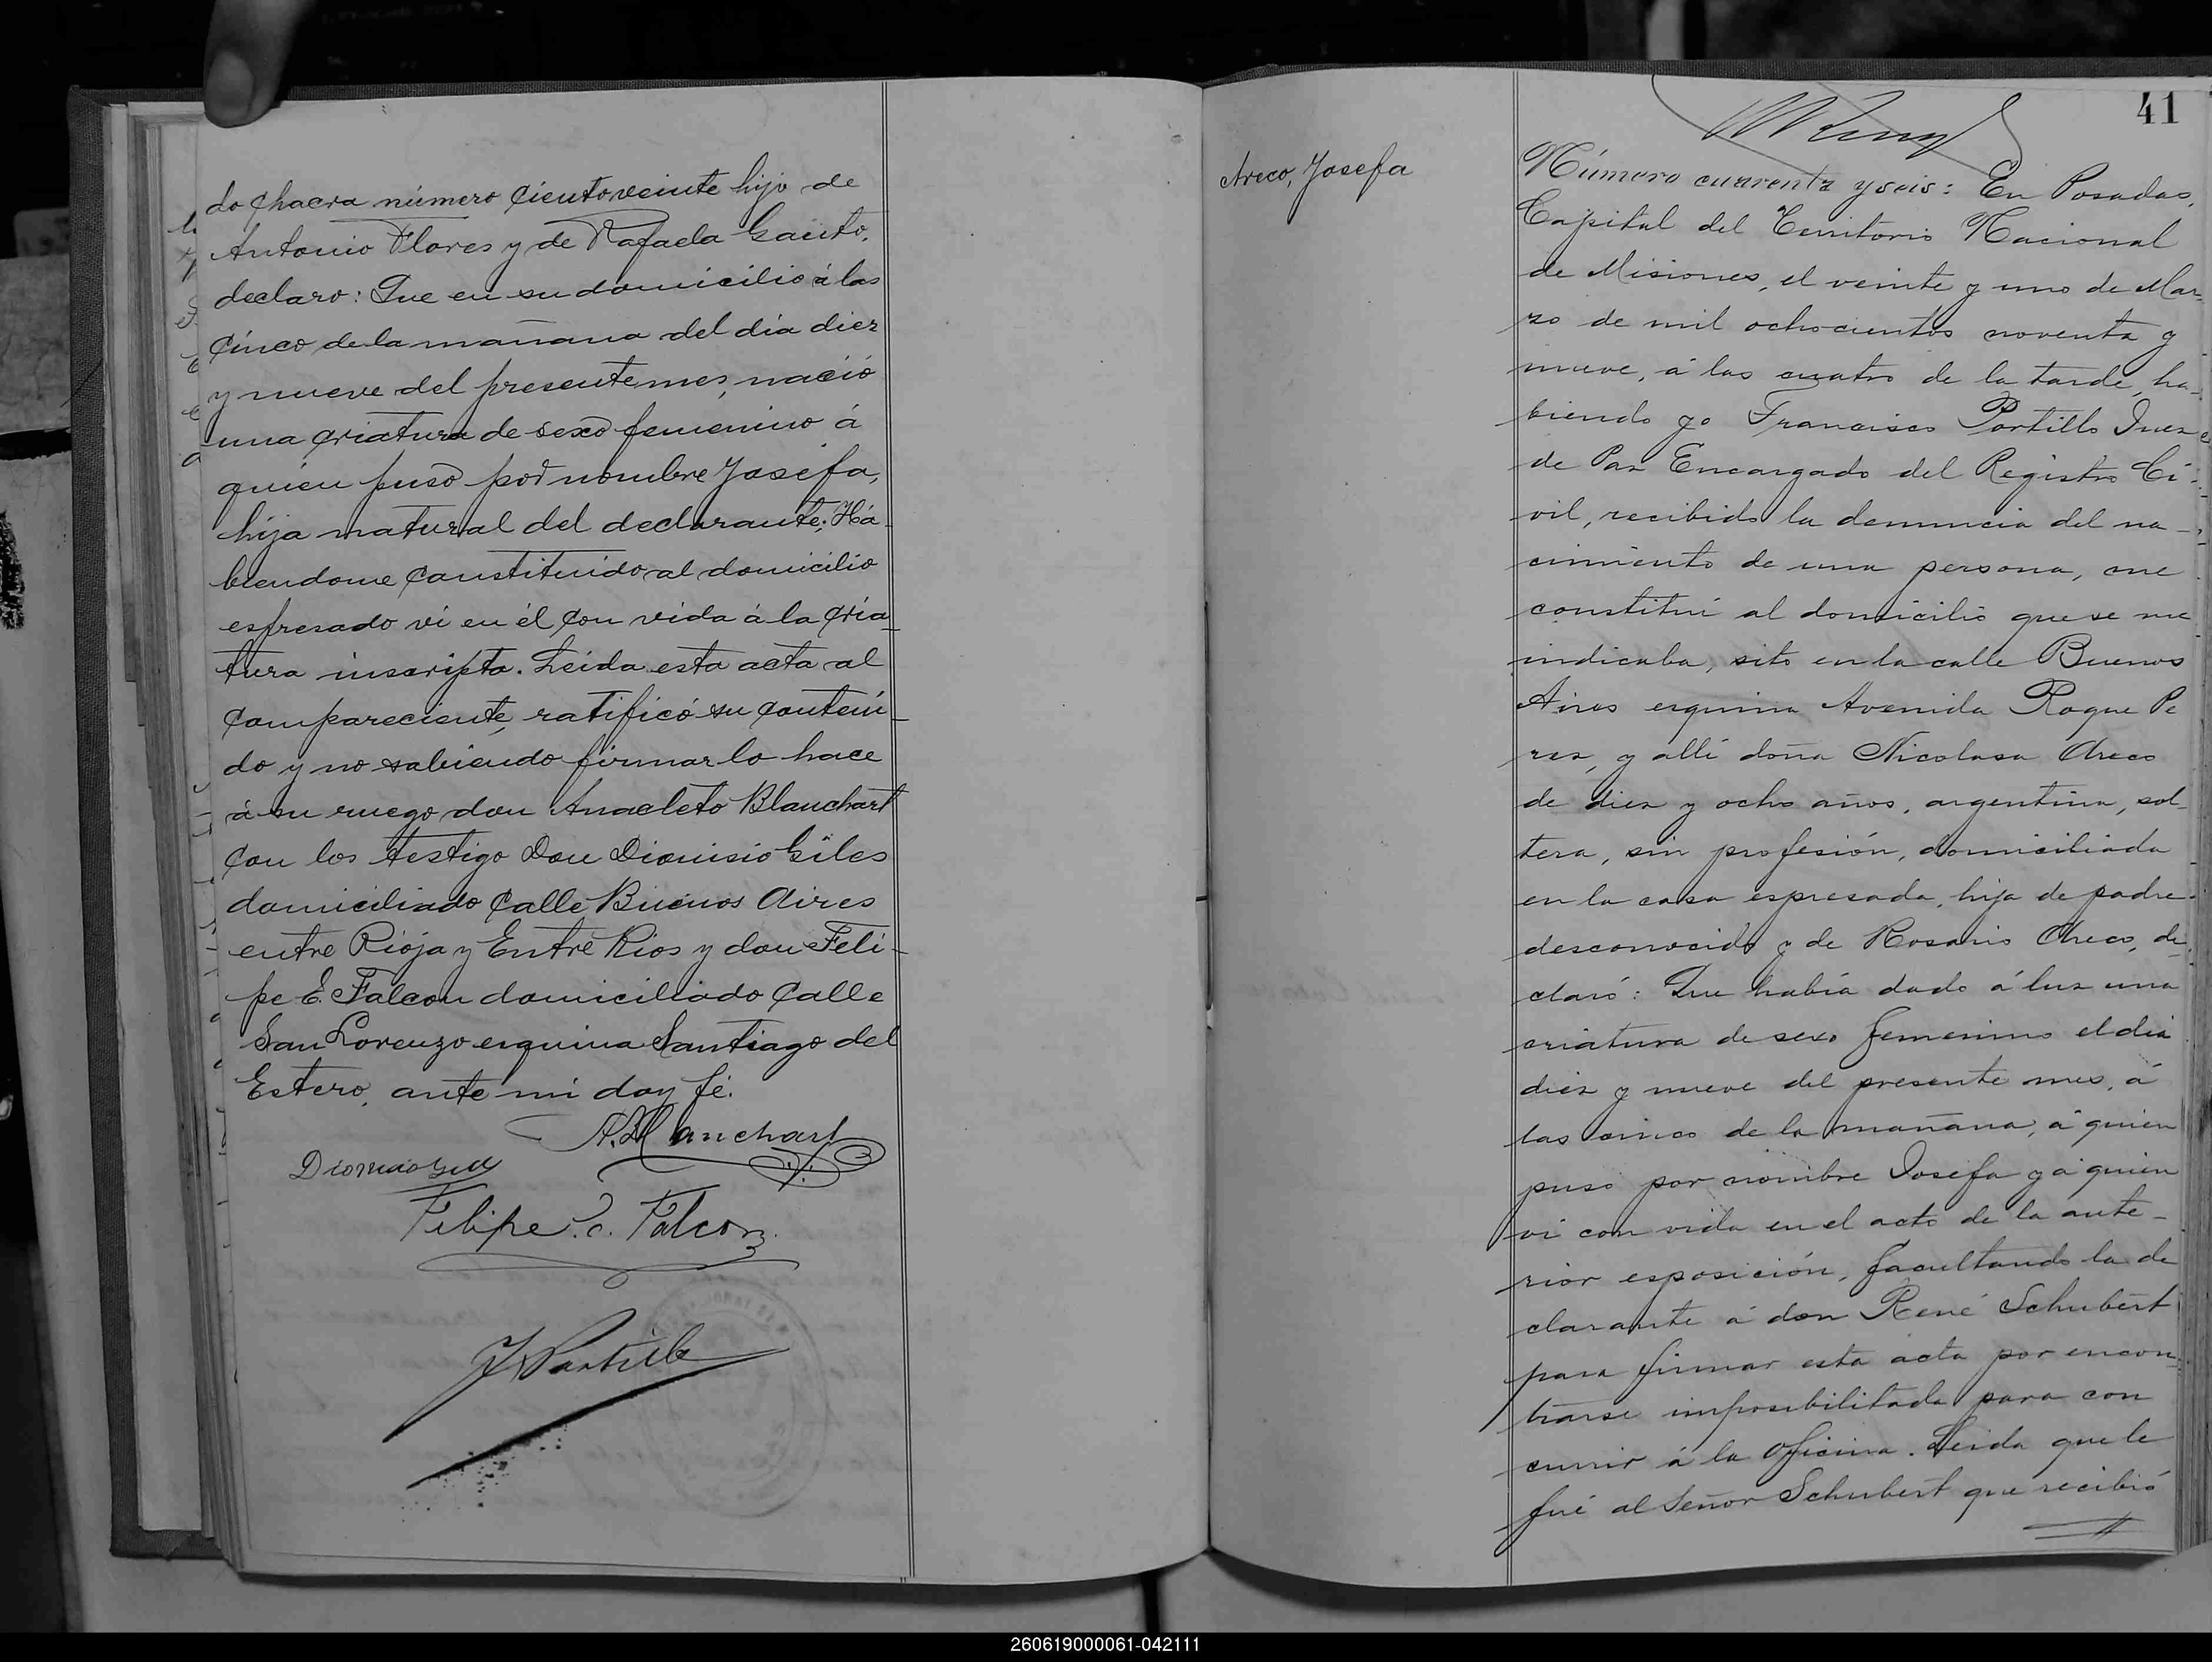 do chacra número ciento veinte hijo de
Antonio Flores y de Rafaela Gauto,
declaro: Que en su domicilio á las
cinco de la mañana del dia diez
y nueve del presente mes, nació
una criatura de sexo femenino á
quién puso por nombre Josefa,
hija natural del declarante; Há-
biendome constituido al domicilio
espresado ví en él con vida á la cria-
tura inscripta. Leida esta acta al
compareciente, ratificó su conteni-
do y no sabiendo firmar lo hace
á su ruego don Anacleto Blanchart
con los testigo Don Dionisio Giles
domiciliado calle Buenos Aires
entre Rioja y Entre Rios y don Feli-
pe E. Falcon domiciliado calle
San Lorenzo esquina Santiago del
Estero, ante mi doy fé.
A. Blanchart
Dionisio
Felipe E. Falcon
F Portillo
41
Areco, Josefa
Número cuarenta y seis: En Posadas,
Capital del Territorio Nacional
de Misiones, el veinte y uno de Mar-
zo de mil ochocientos noventa y
nueve, á las cuatro de la tarde, ha-
biendo yo Francisco Portillo Juez
de Paz Encargado del Registro Ci-
vil, recibido la denuncia del na-
cimiento de una persona, me
constituí al domicilio que se me
indicaba, sito en la calle Buenos
Aires esquina Avenida Roque Pe
rez, y allí doña Nicolasa Areco
de diez y ocho años, argentina, sol-
tera, sin profesión, domiciliada
en la casa espresada, hija de padre
desconocido y de Rosario Areco, de-
claró: Que había dado á luz una
criatura de sexo femenino el dia
diez y nueve del presente mes, á
las cinco de la mañana, á quien
puso por nombre Josefa y á quien
vi con vida en el acto de la ante-
rior esposición, facultando la de
clarante á don René Schubert
para firmar esta acta por encon-
trarse imposibilitada para con
currir á la Oficina. Leida que le
fué al Señor Schubert que recibió
260619000061-042111